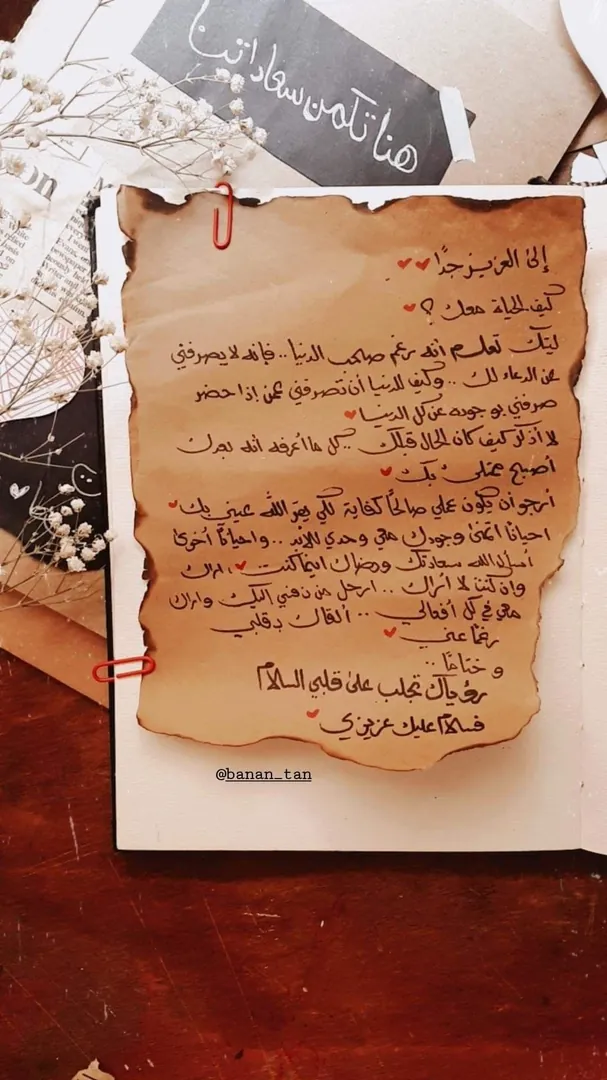 هنا تكمن سعادتنا
إلى العزيز جدًا
كيف الحياة معك ؟
ليتك تعلم أنه برغم صاخب الدنيا .. فإنه لا يصرفني
عن الدعاء لك .. وكيف للدنيا أن تصرفني عمن إذا حضر
صرفني بوجوده عن كل الدنيا
لا أذكر كيف كان الحال قبلك .. كل ما أعرفه أنه
أصبح بك
أرجو أن يكون عملي صالحًا كفاية لكي يقر الله عيني بك
احيانًا اتمنى وجودك معي وحدي للابد .. واحيانًا أخرى
أسأل الله سعادتك ورضاك اينما كنت ، اراك
وإن كنت لا أراك .. ارحل من نفسي إليك واراك
معي في كل أفعالي .. ألقاك بقلبي
رغمًا عني
و ختامًا ..
رؤياك تجلب على قلبي السلام
فسلام عليك عزيزي
@banan_tan
on